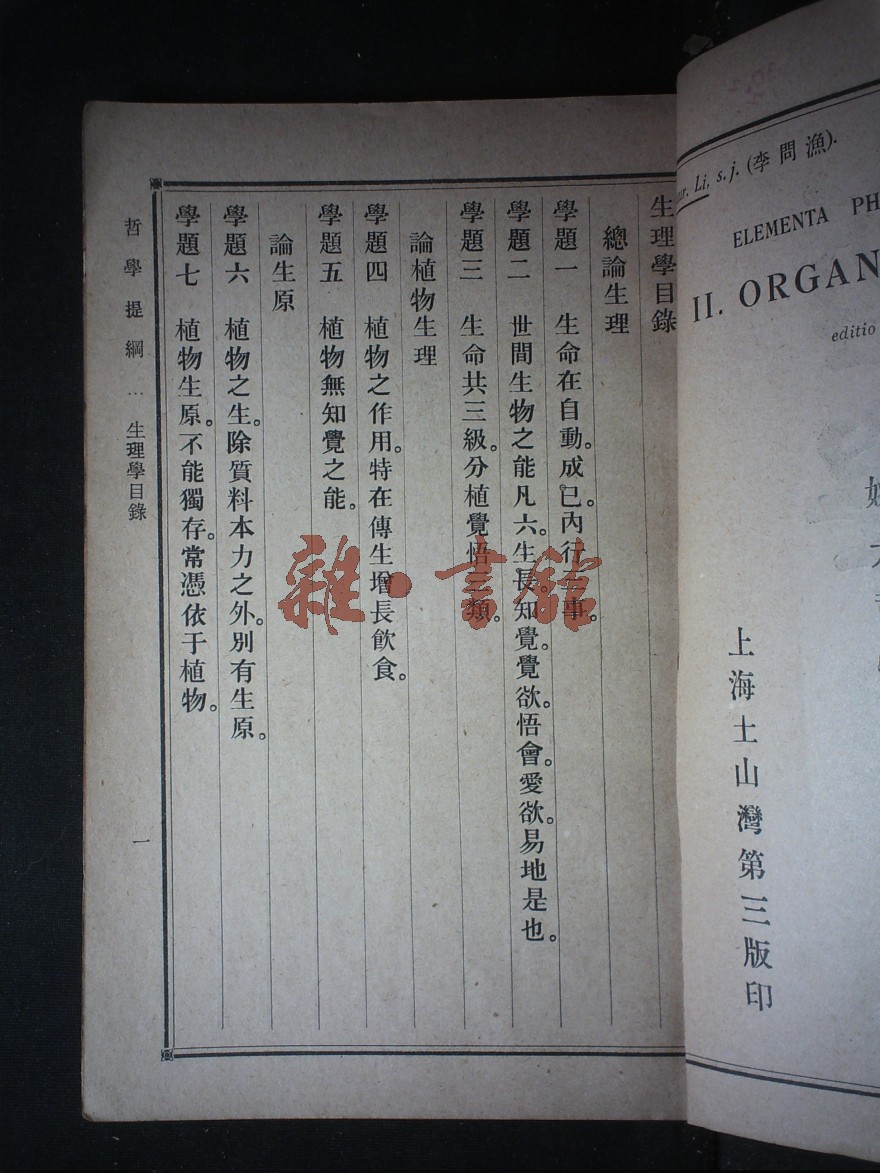 生理學目錄
總論生理
學題一 生命在自動。成已。內行 事。
學題二 世間生物之能凡六。生長。知覺。覺欲。悟會。愛欲。易地是也。
學題三 生命共三級。分植覺悟三類。
論植物生理
學題四 植物之作用。特在傳生增長飲食。
學題五 植物無知覺之能。
論生原
學題六 植物之生。除質料本力之外。別有生原。
學題七 植物生原。不能獨存。常憑依于植物。
哲學提綱 … 生理學目錄 一
Li, s. j. (李問漁).
ELEMENTA PH
II. ORGAN
editio
上海土山灣第三版印
雜·書館